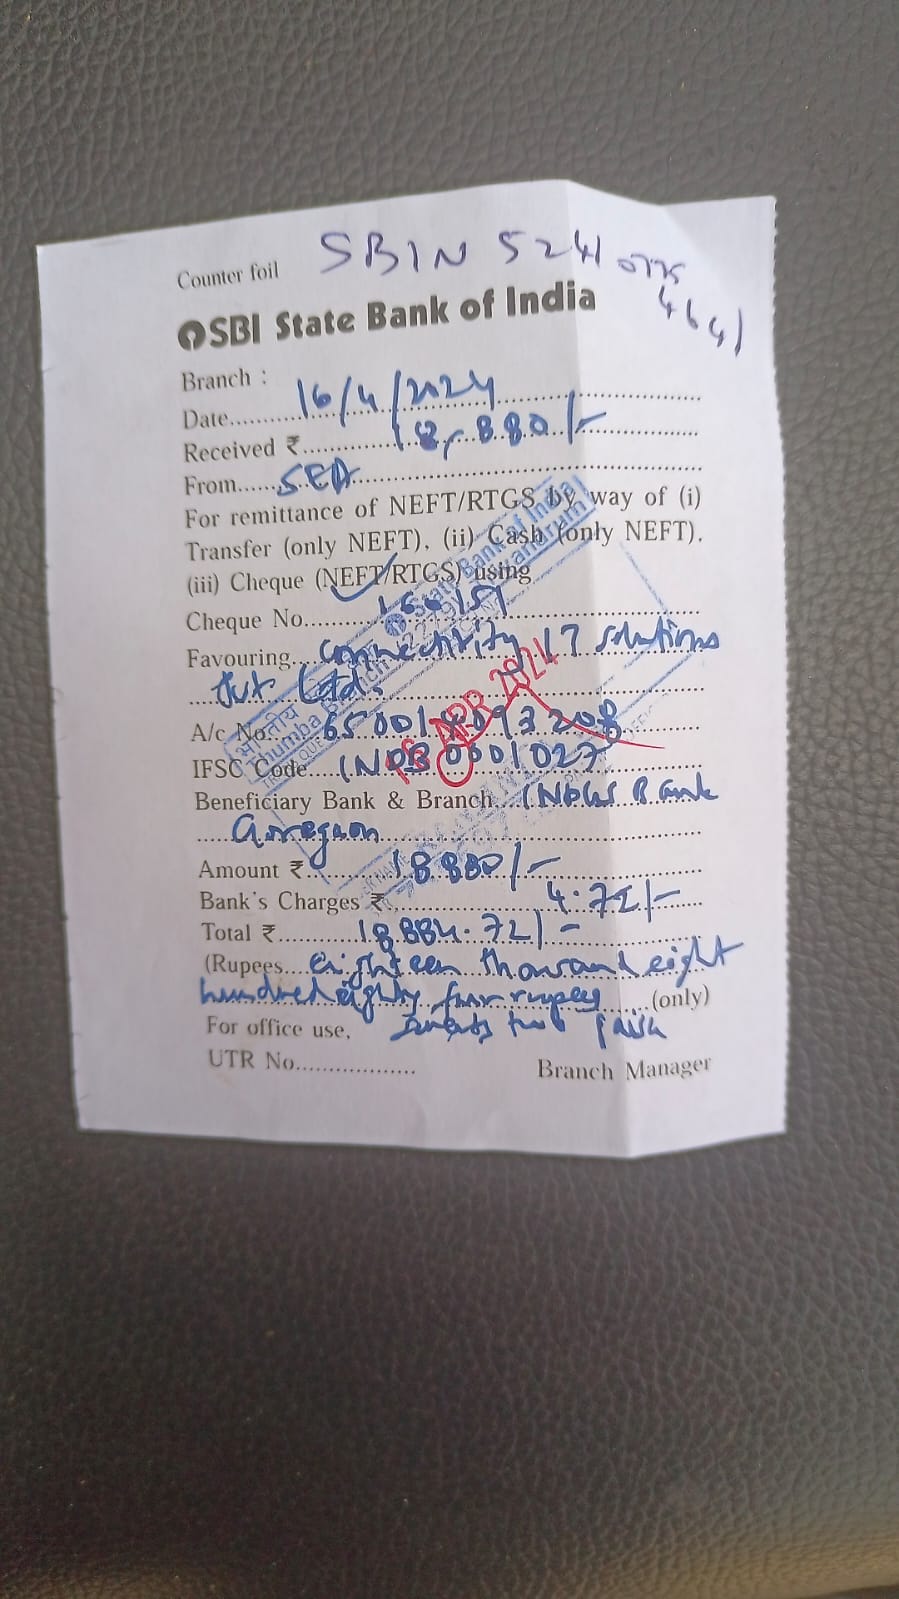 SBIN 5241
4641
Counter foil
SBI State Bank of India
Branch :
Date.......... 16/4/2024
Received ₹.......... 18,880/-
From...... SEA
For remittance of NEFT/RTGS by way of (i)
Transfer (only NEFT), (ii) Cash (only NEFT),
(iii) Cheque (NEFT/RTGS) using
Cheque No..........
Favouring.... Connectivity IT Solutions
Pvt Ltd.
A/c No.
IFSC Code.... INDB0001027
Beneficiary Bank & Branch... INDUS Bank
Goregaon
Amount ₹.......... 18880/-
Bank's Charges ₹.......... 4.72/-
Total ₹.......... 18884.72/-
(Rupees.... Eighteen thousand eight
hundred eighty four rupees (only)
For office use, Seventy two paisa
UTR No.................
Branch Manager
State Bank of India
Thumba
16 APR 2024